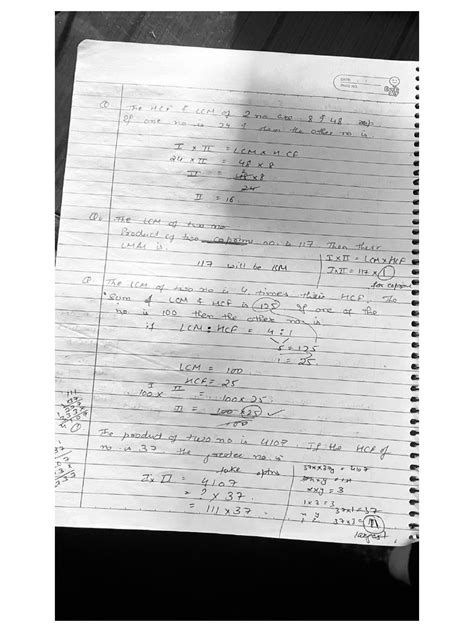 Q The HCF & LCM of 2 no are 8 & 48 resp.
If one no is 24 then the other no is
I x II = LCM x HCF
24 x II = 48 x 8
II = 48 x 8
24
II = 16.
Q. The LCM of two no.
Product of two coprime no is 117 Then their
LCM is.
117 will be LCM
I x II = LCM x HCF
I x II = 117 x 1
for coprime
Q The LCM of two no is 4 times their HCF. The
sum of LCM & HCF is 125 If one of the
no is 100 then the other no is
if LCM : HCF = 4 : 1
5 = 125
1 = 25
LCM = 100
HCF = 25
I II
100 x = 100 x 25
II = 100 x 25
100
The product of two no is 4107. If the HCF of
no is 37 the greater no is
I x II = 4107
= ? x 37
= 111 x 37
take
37x x 37y = 4107
x x y = 3
1 x 3 = 3
x y
37 x 1 = 37
37 x 3 = 111
largest